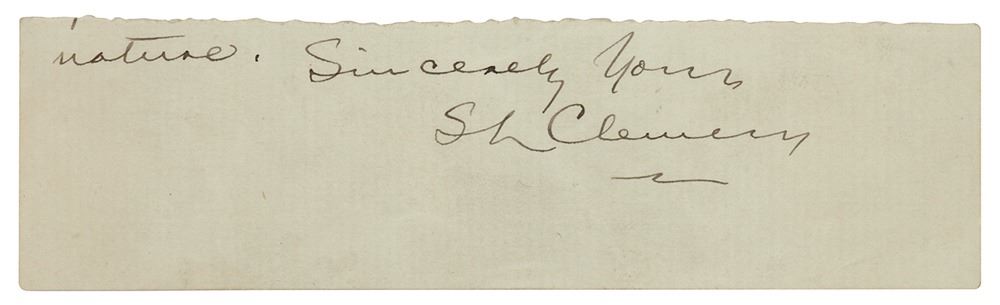 nature. Sincerely Yours
SL Clemens